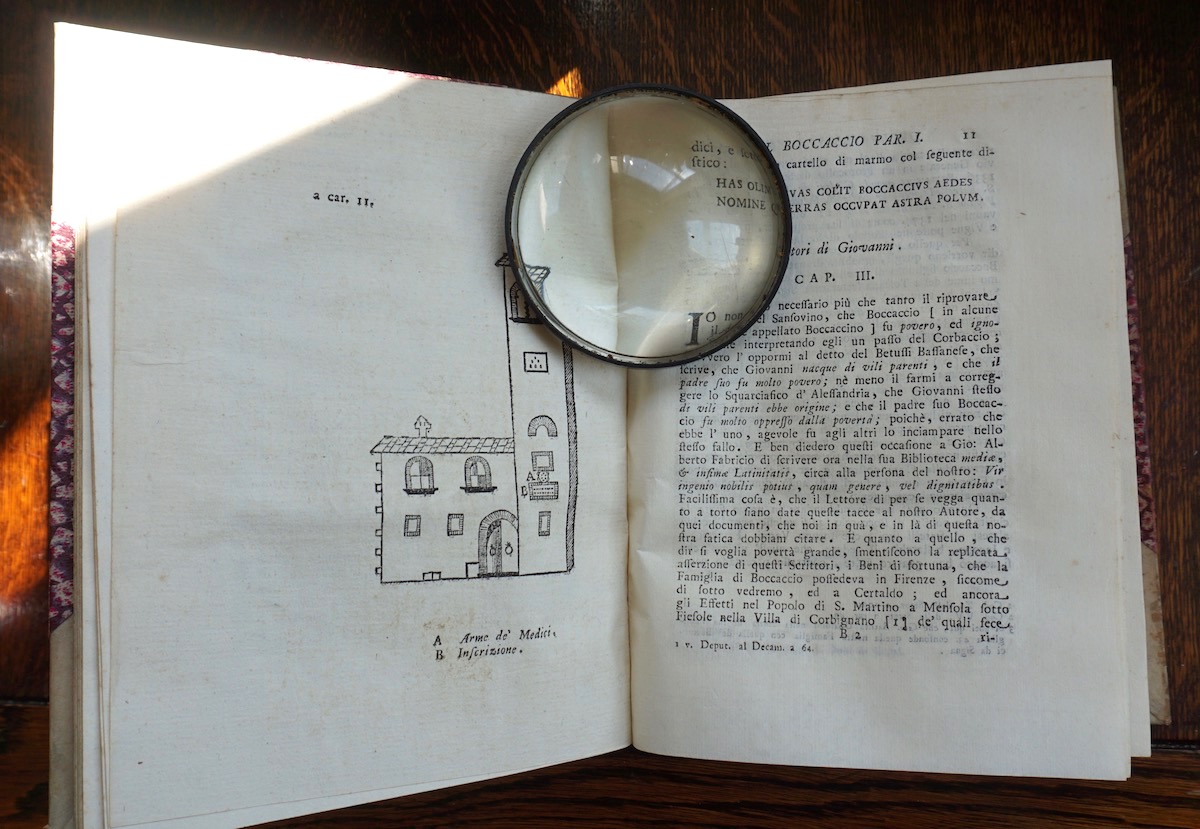 a car. 11.
A Arme de' Medici.
B Inscrizione.
A
B
BOCCACCIO PAR. I. 11
dici, e cartello di marmo col ſeguente di-
ſtico:
HAS OLIM VAS COLIT BOCCACCIVS AEDES
NOMINE ERRAS OCCVPAT ASTRA POLVM.
di Giovanni.
CAP. III.
IO non neceſſario più che tanto il riprovare
del Sanſovino, che Boccaccio [ in alcune
appellato Boccaccino ] fu povero, ed igno-
interpretando egli un paſſo del Corbaccio;
l' oppormi al detto del Betuſſi Baſſaneſe, che
ſcrive, che Giovanni nacque di vili parenti, e che il
padre ſuo fu molto povero; nè meno il farmi a correg-
gere lo Squarciafico d' Aleſſandria, che Giovanni ſteſſo
de vili parenti ebbe origine; e che il padre ſuo Boccac-
cio fu molto oppreſſo dalla povertà; poichè, errato che
ebbe l' uno, agevole fu agli altri lo inciampare nello
ſteſſo fallo. E ben diedero queſti occaſione a Gio: Al-
berto Fabricio di ſcrivere ora nella ſua Biblioteca mediæ,
& infimæ Latinitatis, circa alla perſona del noſtro: Vir
ingenio nobilis potius, quam genere, vel dignitatibus.
Faciliſſima coſa è, che il Lettore di per ſe vegga quan-
to a torto ſiano date queſte tacce al noſtro Autore, da
quei documenti, che noi in quà, e in là di queſta no-
ſtra fatica dobbiani citare. E quanto a quello, che
dir ſi voglia povertà grande, ſmentiſcono la replicata
aſſerzione di queſti Scrittori, i Beni di fortuna, che la
Famiglia di Boccaccio poſſedeva in Firenze, ſiccome
di ſotto vedremo, ed a Certaldo; ed ancora
gli Effetti nel Popolo di S. Martino a Menſola ſotto
Fieſole nella Villa di Corbignano [1] de' quali fece
B 2 ri-
1 v. Deput. al Decam. a 64.